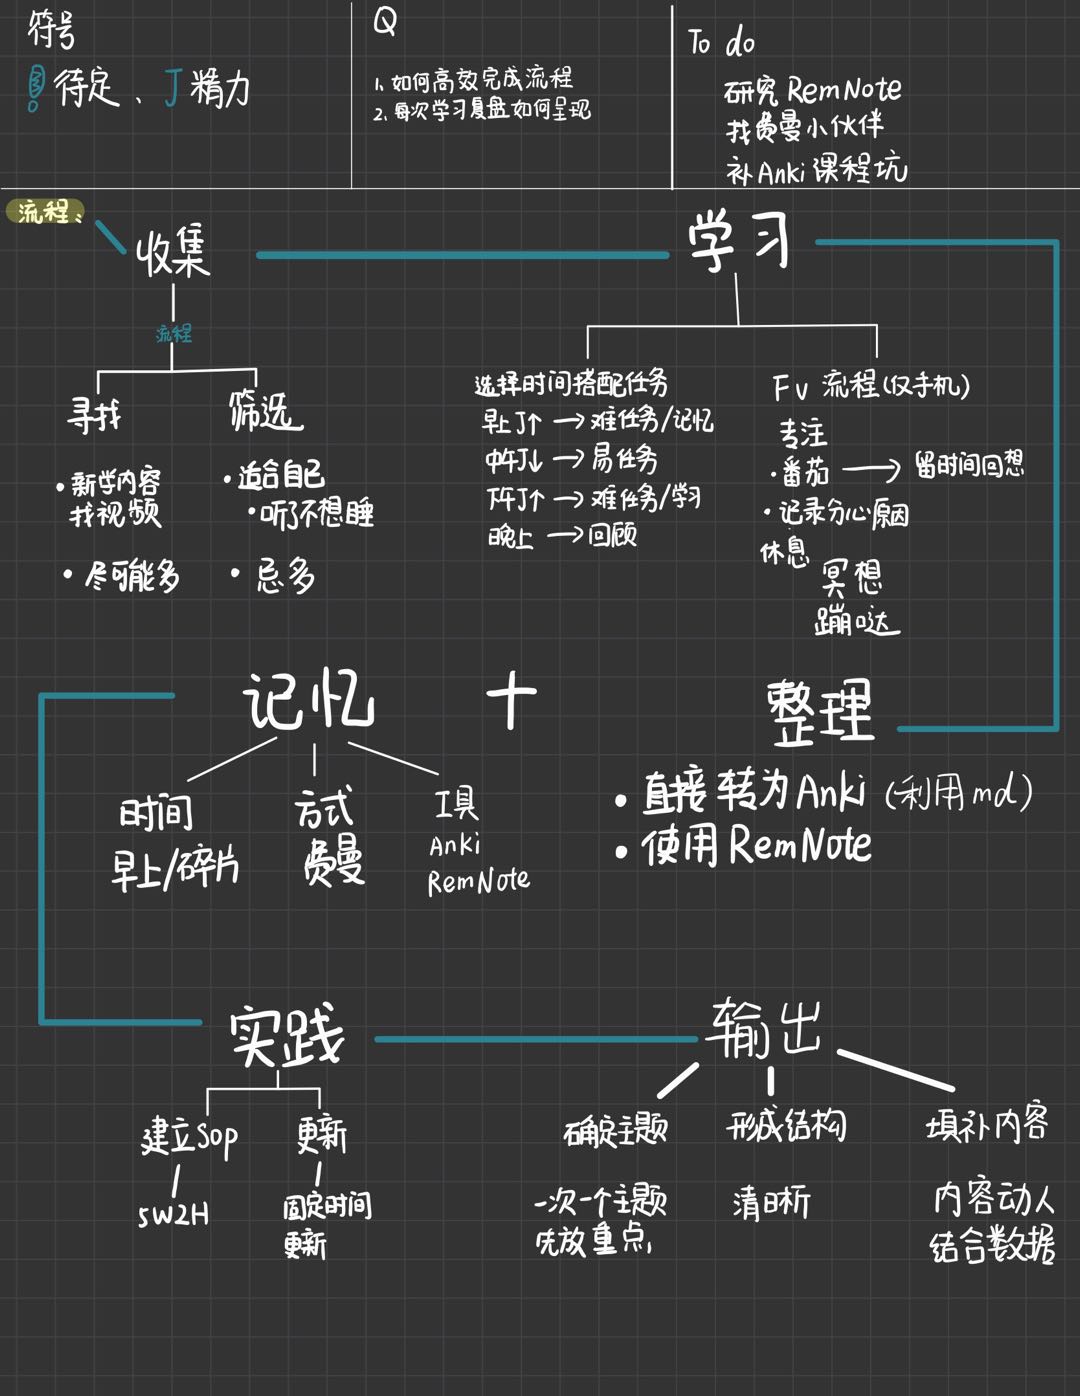 符号
待定、J精力
Q
1、如何高效完成流程
2、每次学习复盘如何呈现
To do
研究 RemNote
找费曼小伙伴
补Anki课程坑
流程:
收集
流程
寻找
新学内容
找视频
尽可能多
筛选
适合自己
听了不想睡
忌多
学习
选择时间搭配任务
早上J↑→难任务/记忆
中午J↓→易任务
下午J↑→难任务/学习
晚上→回顾
Fv 流程(仅手机)
专注
番茄→留时间回想
记录分心原因
休息
冥想
蹦哒
记忆 + 整理
时间
早上/碎片
方式
费曼
工具
Anki
RemNote
直接转为Anki(利用md)
使用RemNote
实践
建立Sop
5W2H
更新
固定时间
更新
输出
确定主题
一次一个主题
先放重点,
形成结构
清晰
填补内容
内容动人
结合数据